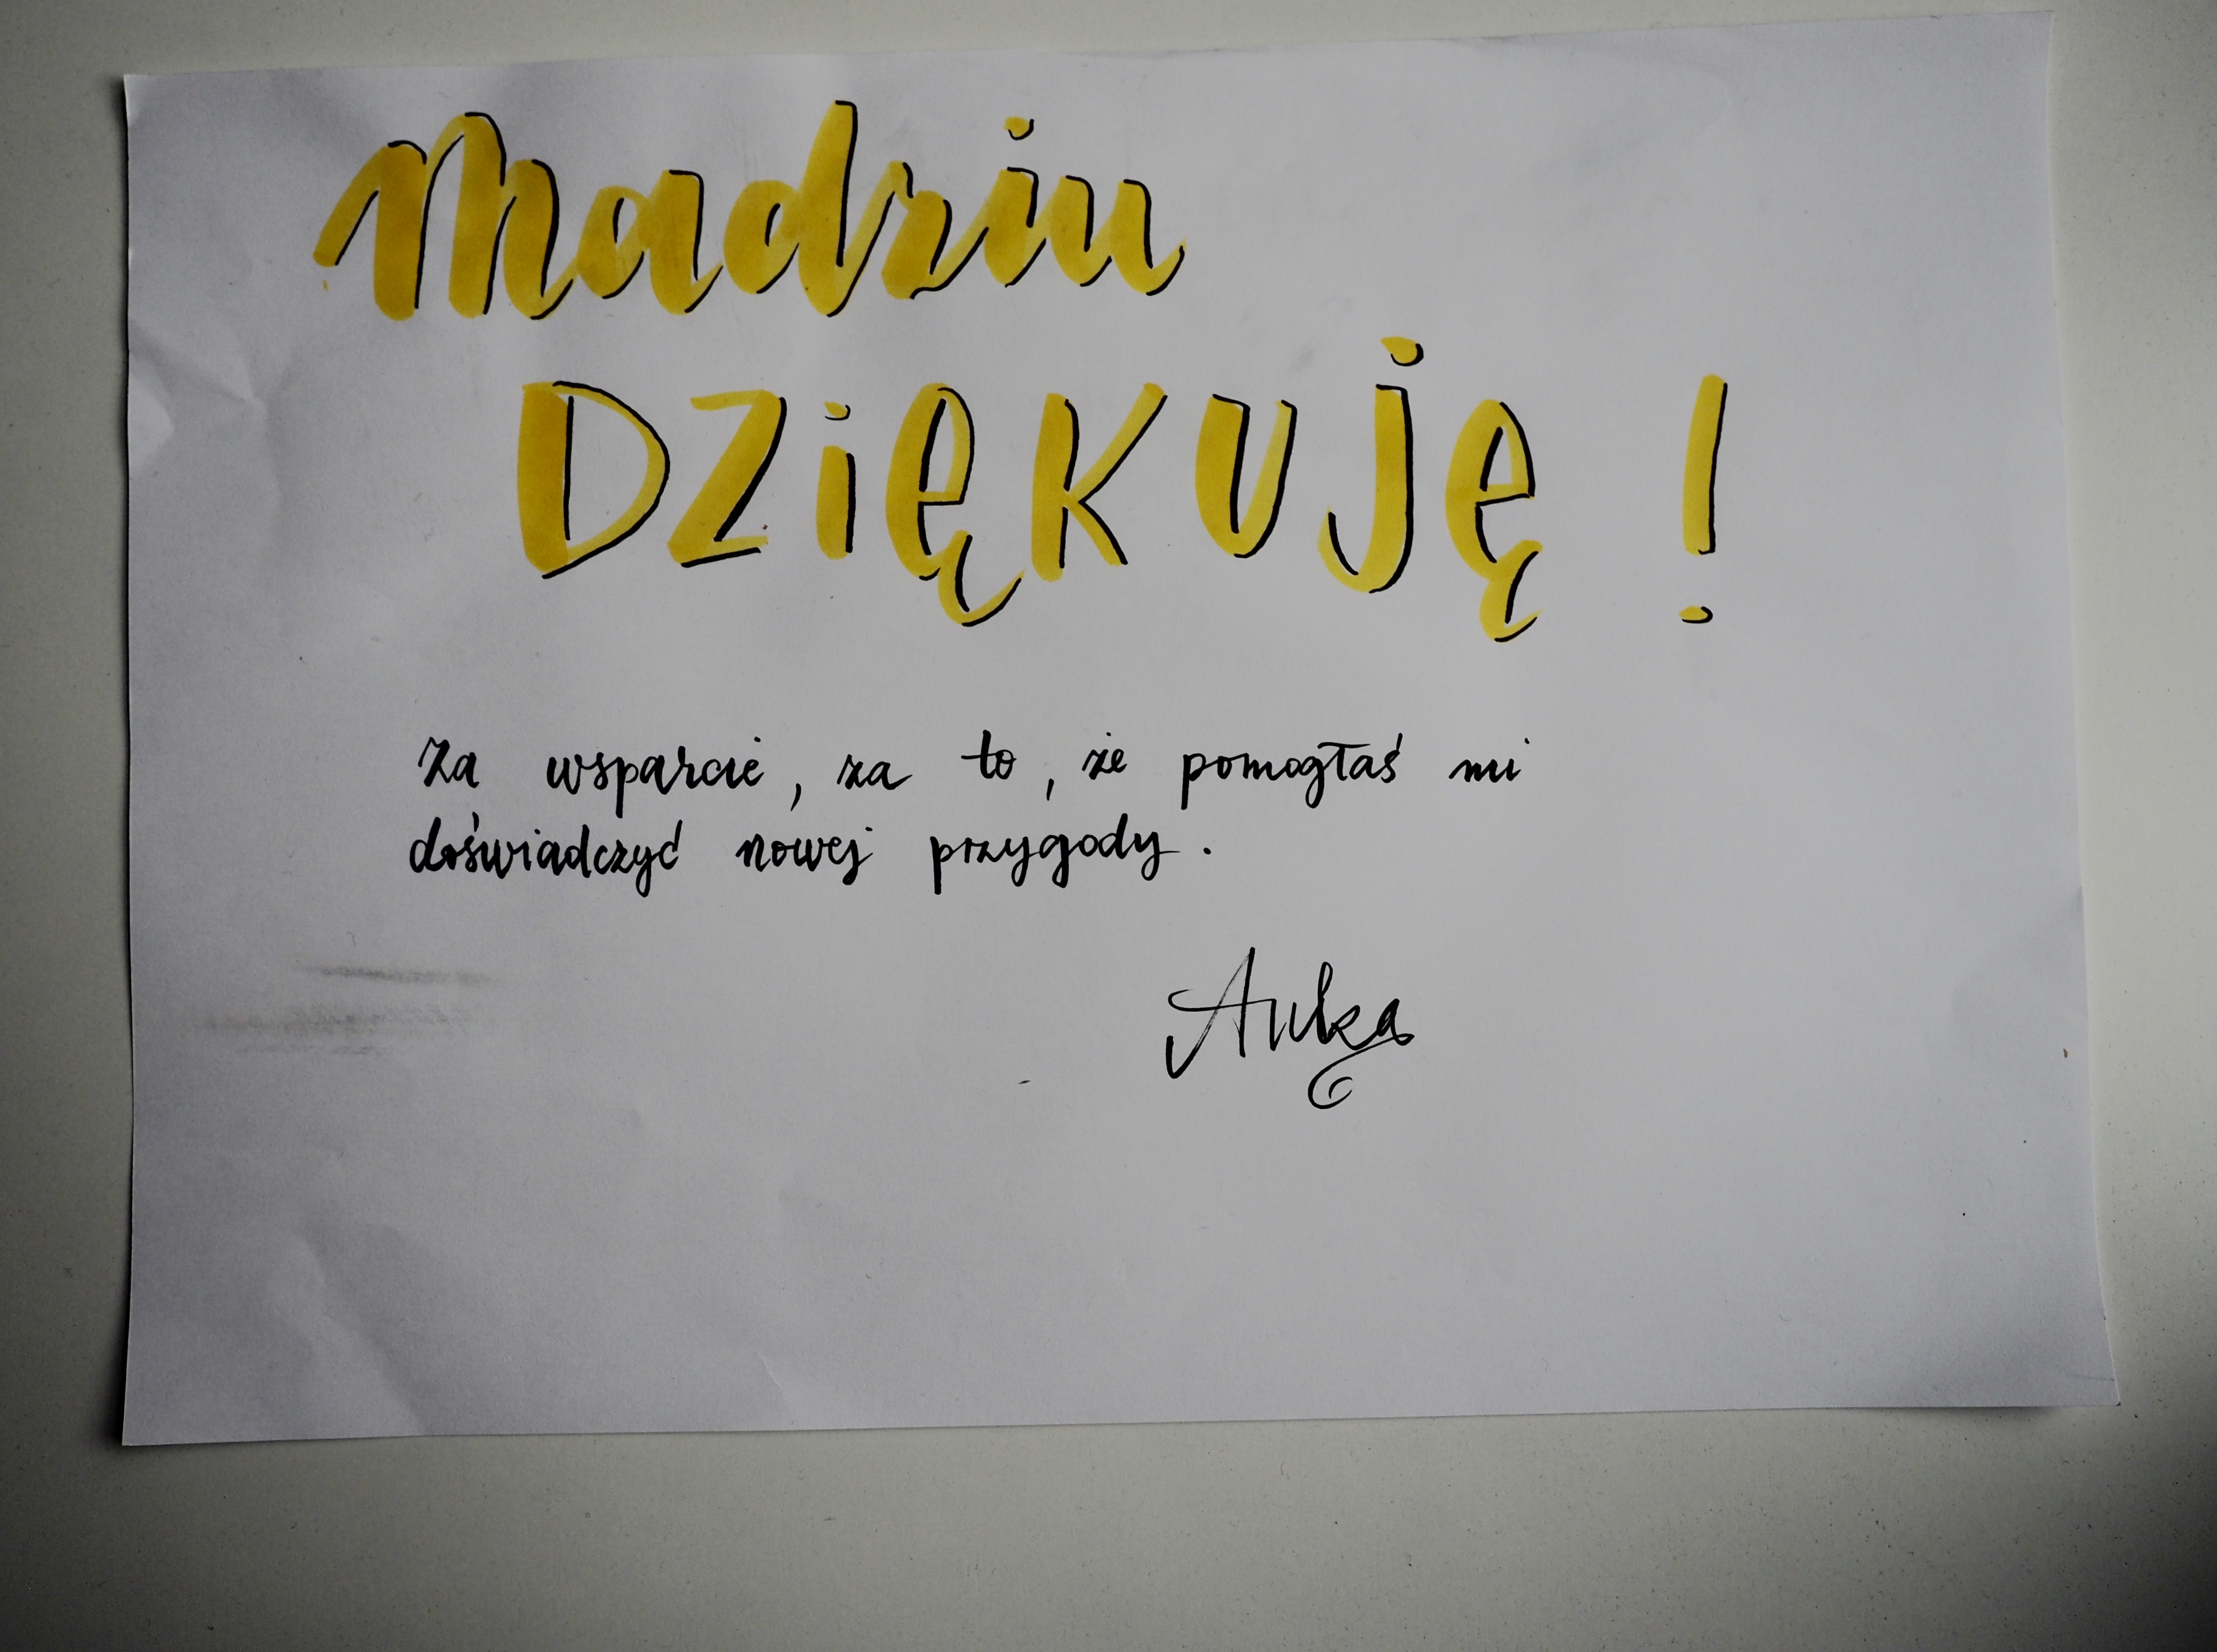 Madziu
DZiĘKUJĘ !
Za wsparcie, za to, że pomogłaś mi
doświadczyć nowej przygody.
Anka